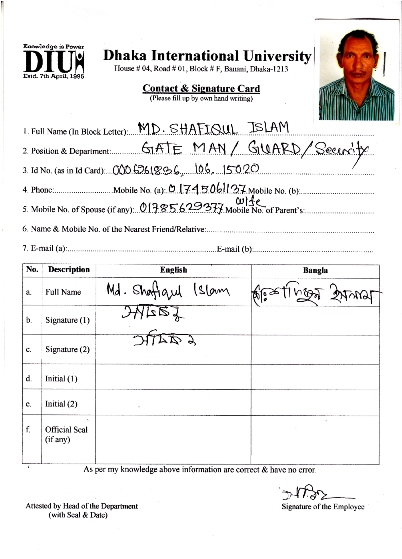 Knowledge is Power
DIU
Estd. 7th April, 1995
Dhaka International University
House # 04, Road # 01, Block # F, Banani, Dhaka-1213
Contact & Signature Card
(Please fill up by own hand writing)
1. Full Name (In Block Letter): MD. SHAFIQUL ISLAM
2. Position & Department: GATE MAN / GUARD / Security
3. Id No. (as in Id Card):
4. Phone: Mobile No. (a): 01745061137 Mobile No. (b):
5. Mobile No. of Spouse (if any): 01785629377 Wife Mobile No. of Parent's:
6. Name & Mobile No. of the Nearest Friend/Relative:
7. E-mail (a): E-mail (b):
No. Description English Bangla
a. Full Name Md. Shafiqul Islam
b. Signature (1)
c. Signature (2)
d. Initial (1)
e. Initial (2)
f. Official Seal
(if any)
As per my knowledge above information are correct & have no error.
Attested by Head of the Department
(with Seal & Date)
Signature of the Employee